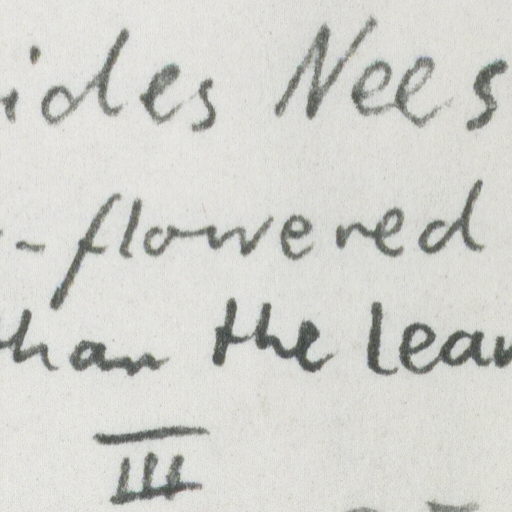 ides Nees
-flowered
han the leav
III